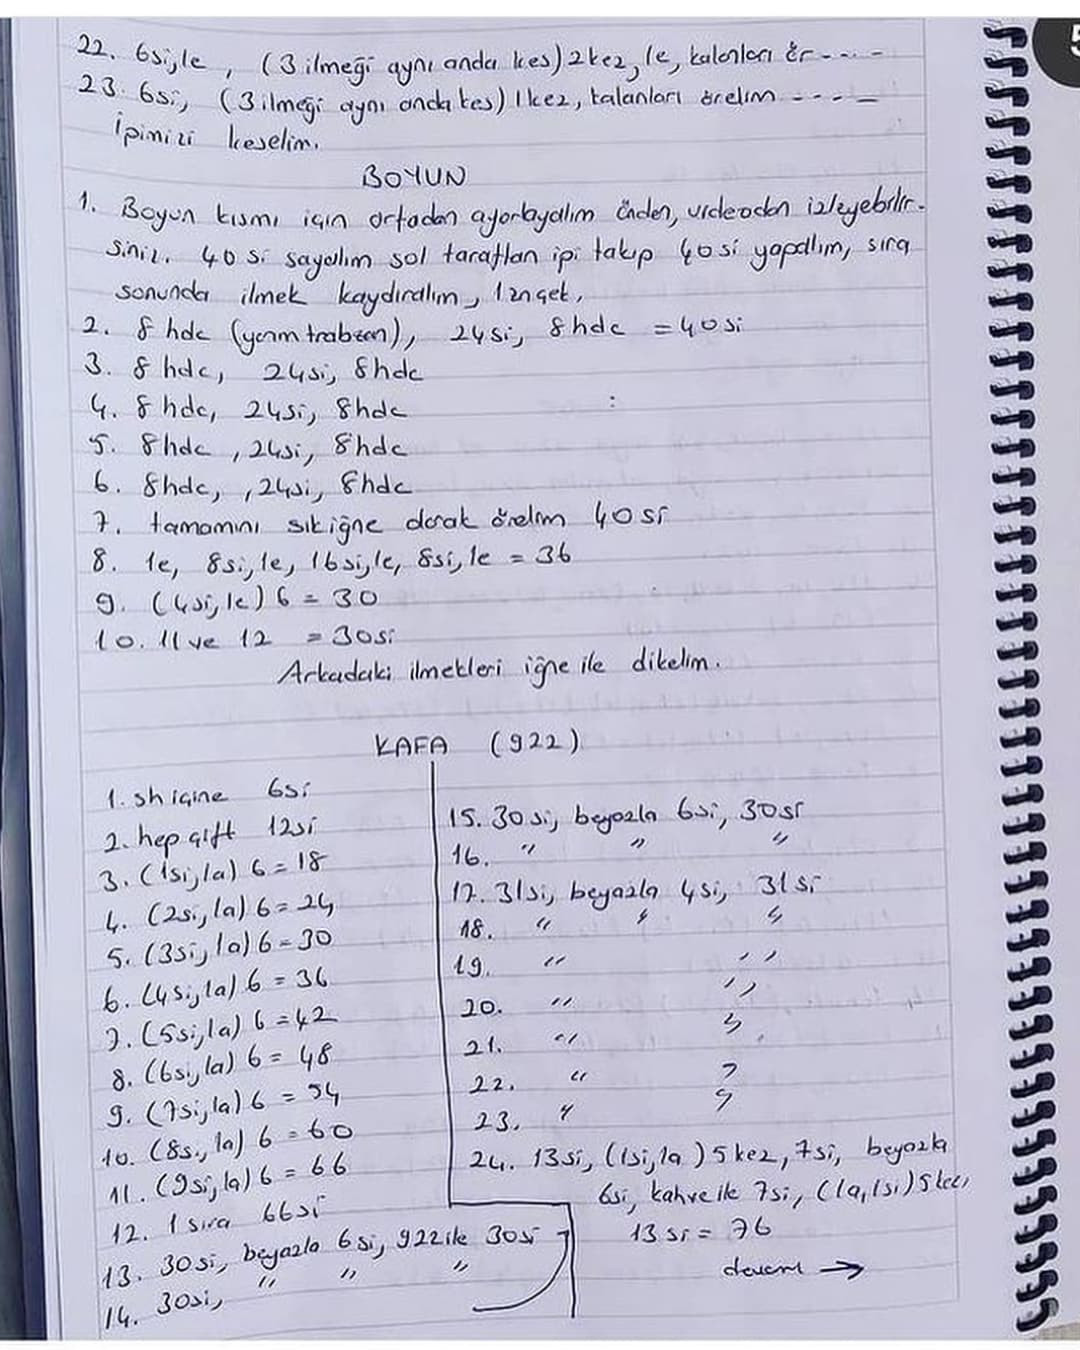 22. 6si,1e, (3 ilmeği aynı anda kes) 2 kez, 1e, kalanları ör-----
23. 6si, (3 ilmeği aynı anda kes) 1kez, kalanları örelim -----
İpinizi keselim.
BOYUN
1. Boyun kısmı için ortadan ayarlayalım önden, videodan izleyebilir-
siniz. 40 si sayalım sol taraftan ipi takıp 40si yapalım, sıra
sonunda ilmek kaydıralım, 1 zn çek,
2. 8 hdc (yarım trabzan), 24si, 8hdc = 40si
3. 8 hdc, 24si, 8hdc
4. 8 hdc, 24si, 8hdc
5. 8hdc, 24si, 8hdc
6. 8hdc, ,24si, 8hdc
7. tamamını sık iğne olarak örelim 40si
8. 1e, 8si,1e, 16si,1e, 8si,1e = 36
9. (4si,1e) 6 = 30
10. 11 ve 12 = 30si
Arkadaki ilmekleri iğne ile dikelim.
KAFA (922)
1. sh içine 6si
2. hep çift 12si
3. (1si,1a) 6 = 18
4. (2si,1a) 6 = 24
5. (3si,1a) 6 = 30
6. (4si,1a) 6 = 36
7. (5si,1a) 6 = 42
8. (6si,1a) 6 = 48
9. (7si,1a) 6 = 54
10. (8si,1a) 6 = 60
11. (9si,1a) 6 = 66
12. 1 sıra 66si
13. 30si, beyazla 6si, 922 ile 30si
14. 30si, " " "
15. 30si, beyazla 6si, 30si
16. " " "
17. 31si, beyazla 4si, 31si
18. " " "
19. " "
20. " "
21. " "
22. " "
23. " "
24. 13si, (1si,1a) 5 kez, 7si, beyazla
6si, kahve ile 7si, (1a,1si) 5 kez,
13si = 76
devam →
5